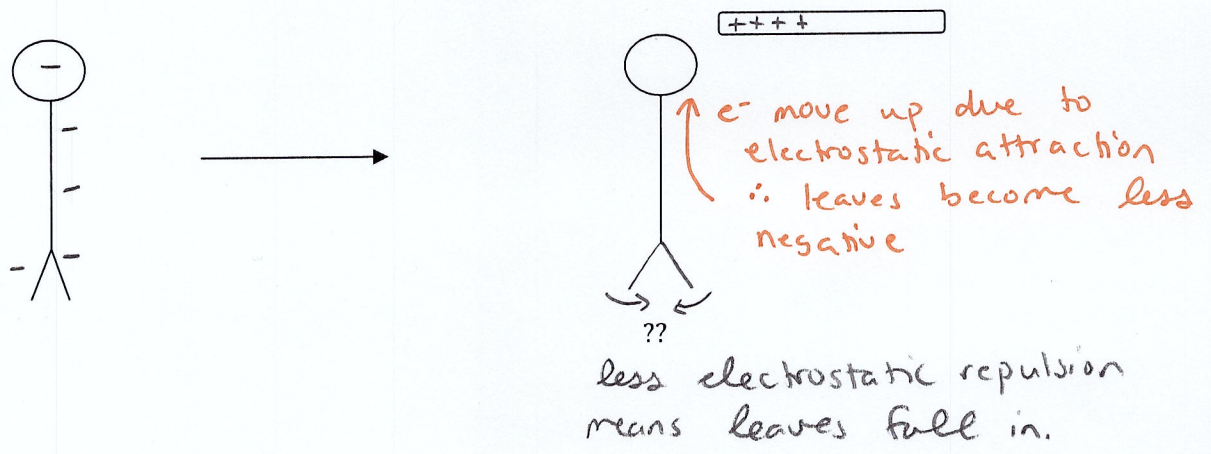 -
++++
e- move up due to
electrostatic attraction
∴ leaves become less
negative
??
less electrostatic repulsion
means leaves fall in.